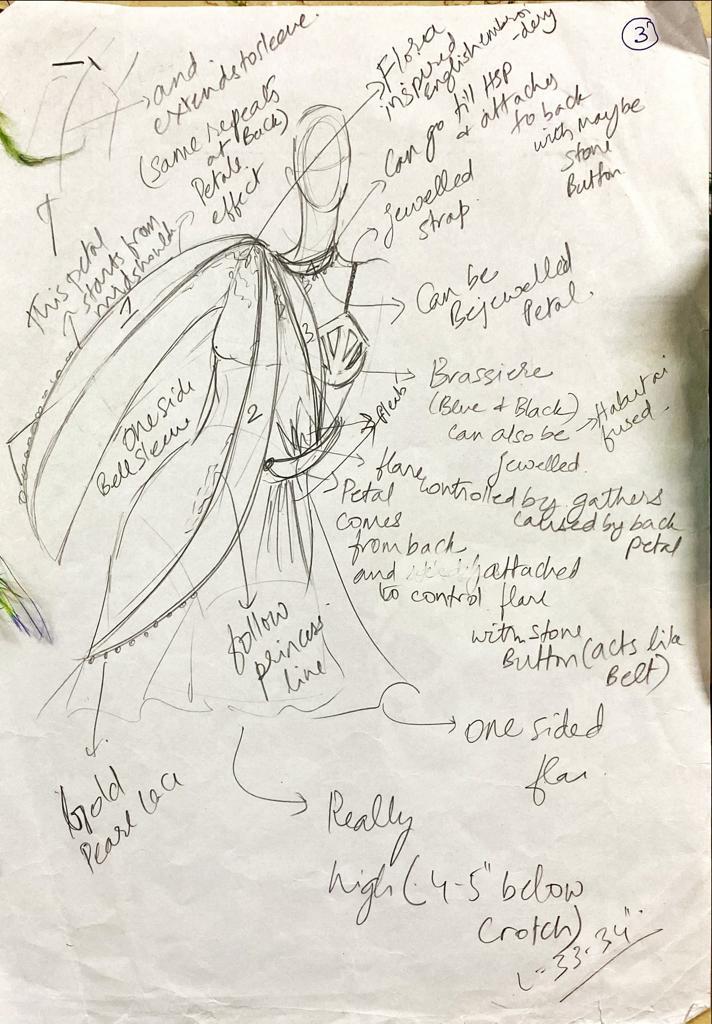 3
and
extends to sleeve.
(same repeats
at Back)
Petal
effect
Flora
inspired
English embroi
-dery
Can go till HSP
& attaches
to back
with maybe
stone
Button
jewelled
strap.
This petal
starts from
midshoulder
1
Can be
Bejewelled
Petal.
3
Brassiere
(Blue & Black)
can also be
jewelled.
Habutai
fused.
one side
Bell sleeve
2
flare controlled by gathers
caused by back
petal
Petal
comes
from back
and attached
to control flare
with stone
Button (acts like
Belt)
follow
princess
line
one sided
flar
Gold
Pearl lace
Really
high (4-5" below
crotch)
L-33-34"